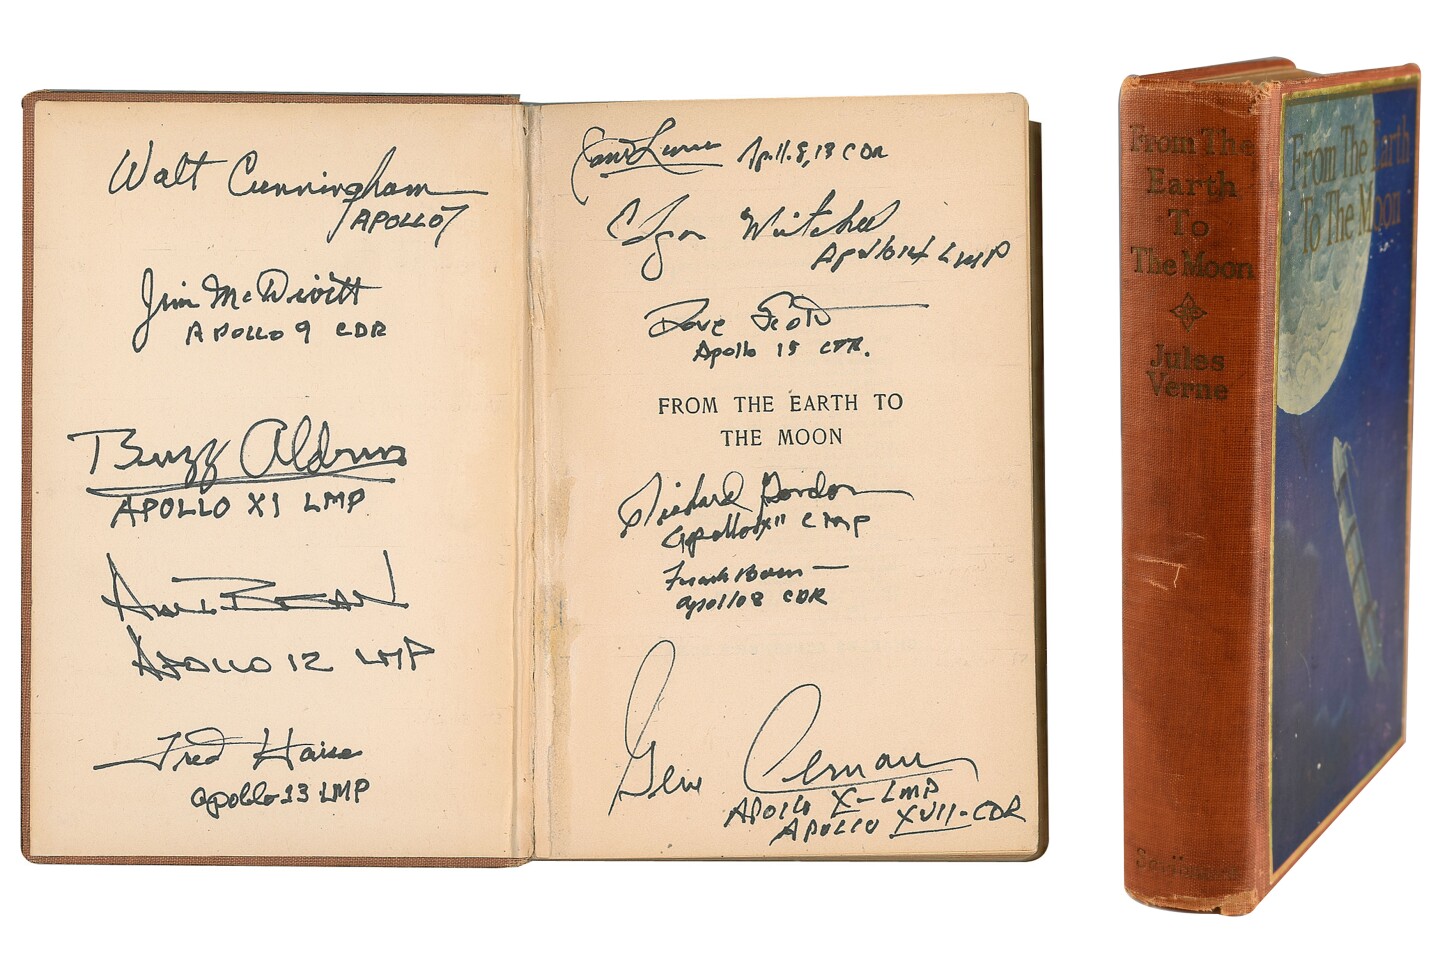 Walt Cunningham
APOLLO 7
Jim McDivitt
APOLLO 9 CDR
Buzz Aldrin
APOLLO XI LMP
Alan Bean
APOLLO 12 LMP
Fred Haise
Apollo 13 LMP
James Lovell Apollo 8, 13 CDR
Edgar Mitchell
Apollo 14 LMP
Dave Scott
Apollo 15 CDR.
FROM THE EARTH TO
THE MOON
Richard Gordon
Apollo XII CMP
Frank Borman
Apollo 8 CDR
Gene Cernan
APOLLO X-LMP
APOLLO XVII-CDR
From The
Earth
To
The Moon
Jules
Verne
Scribners
From The Earth
To The Moon